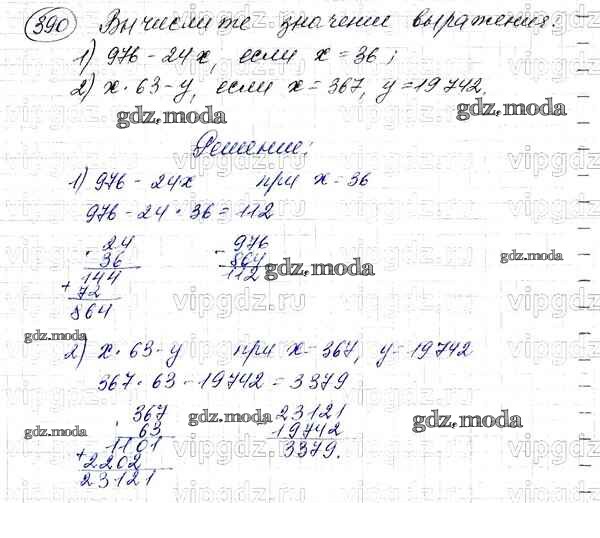 390 Вычислите значение выражения:
1) 976 - 24x, если x = 36;
2) x · 63 - y, если x = 367, y = 19742.
gdz.moda gdz.moda
Решение:
1) 976 - 24x при x = 36
976 - 24 · 36 = 112
· 24 - 976
36 864
144 112
+ 72
864
gdz.moda gdz.moda
gdz.moda
2) x · 63 - y при x = 367, y = 19742
367 · 63 - 19742 = 3379
· 367 - 23121
63 19742
1101 3379.
+ 2202
23121
gdz.moda gdz.moda gdz.moda
vipgdz.ru